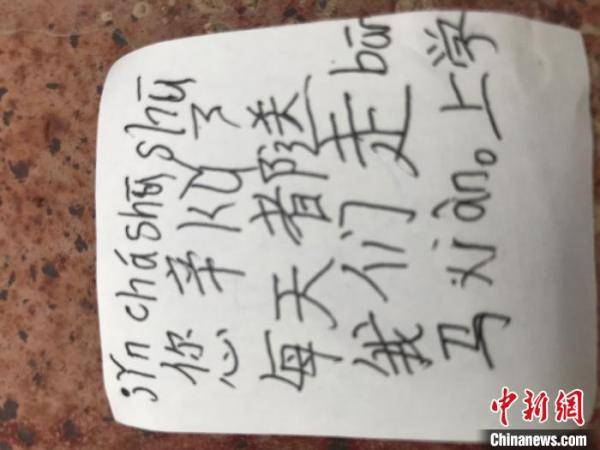 jǐn chá shū shū
您辛kǔ了
每天都送
俄们走bān
马xiàn。上学
中新网
Chinanews.com